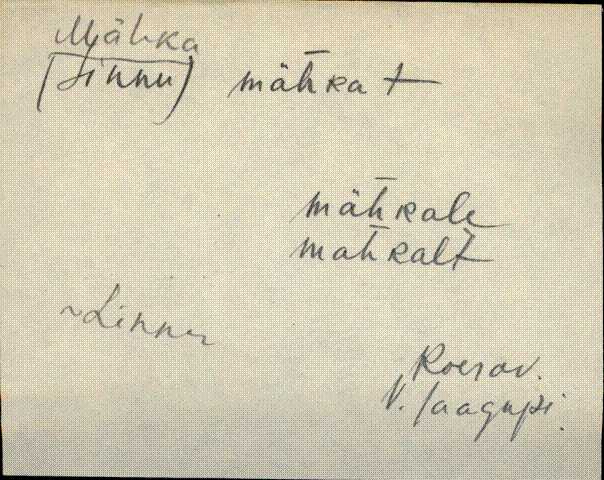 Mähka
(Linnu) mäh̄kat
mäh̄kale
mah̄kalt
~Linnu
Roerav.
V. Jaagupi.